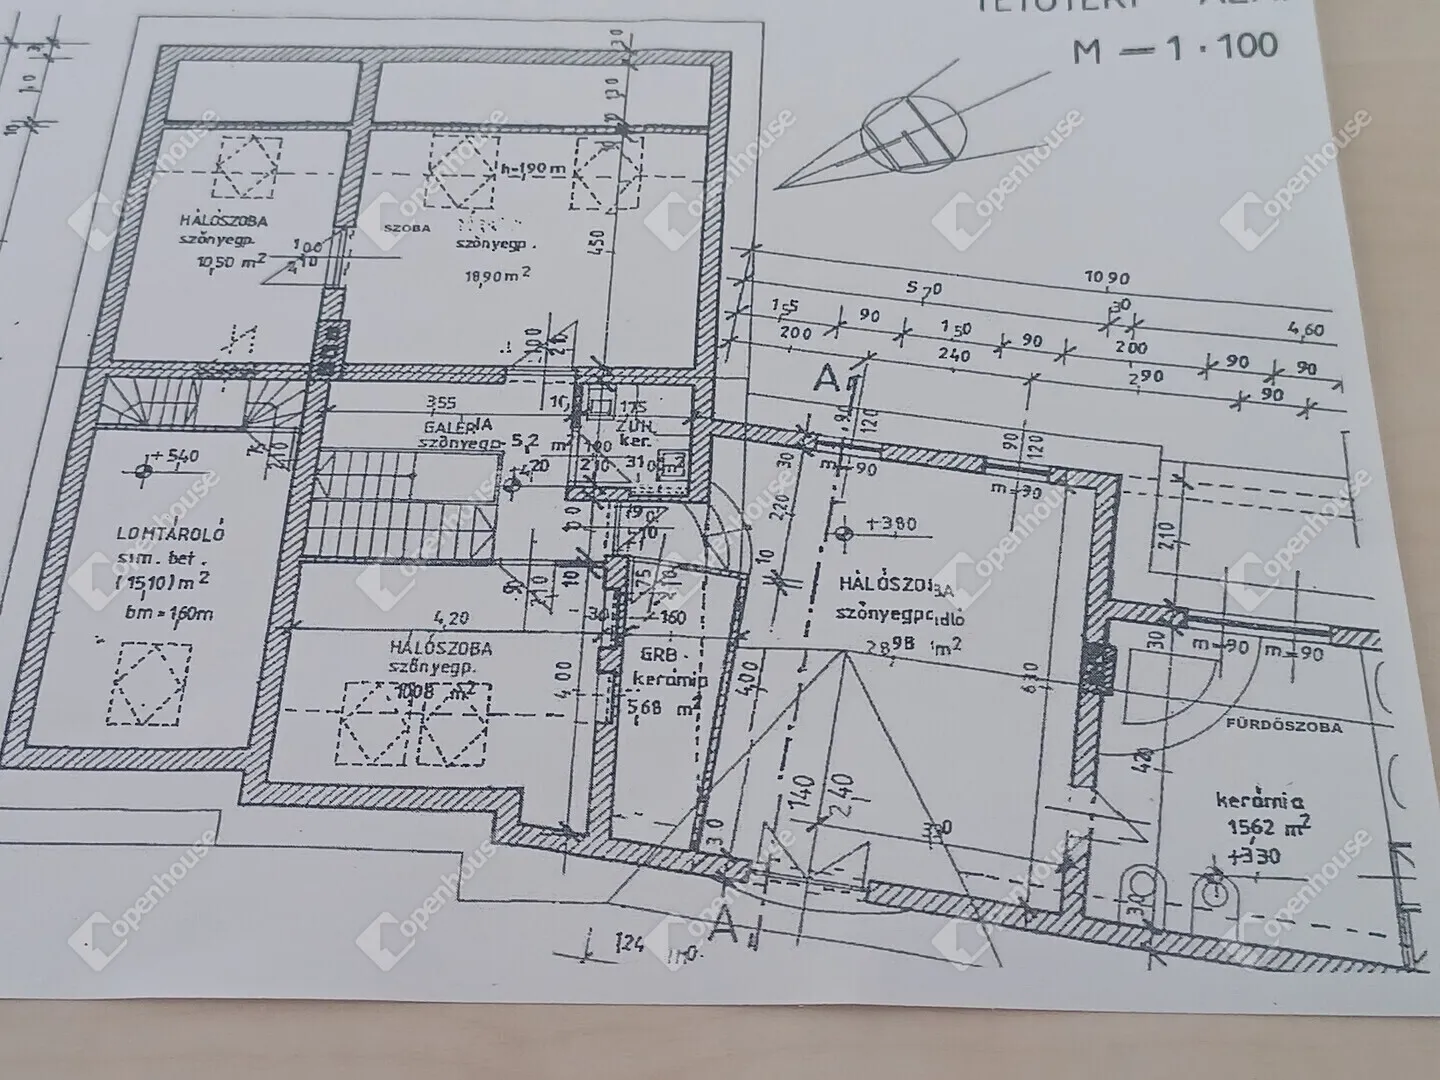 M — 1 · 100
h=190 m
HÁLÓSZOBA
szőnyegp.
10,50 m²
100
210
SZOBA
szőnyegp.
18,90 m²
450
130
1090
570
30
4,60
155
90
150
90
200
90
90
200
240
290
90
A
355
GALÉRIA
szőnyegp.
5,2 m²
175
ZUH.
ker.
+540
75
210
LOMTÁROLÓ
sim. bet.
(15,10) m²
bm=1,60m
4,20
HÁLÓSZOBA
szőnyegp.
1008 m²
4,00
30
160
GRB.
kerámia
568 m²
4,00
90
120
90
120
m=90
m=90
30
220
10
+380
HÁLÓSZOBA
szőnyegpadló
2898 m²
630
140
240
330
30
A
124
210
30
m=90
m=90
FÜRDŐSZOBA
420
kerámia
1562 m²
+330
30
Openhouse